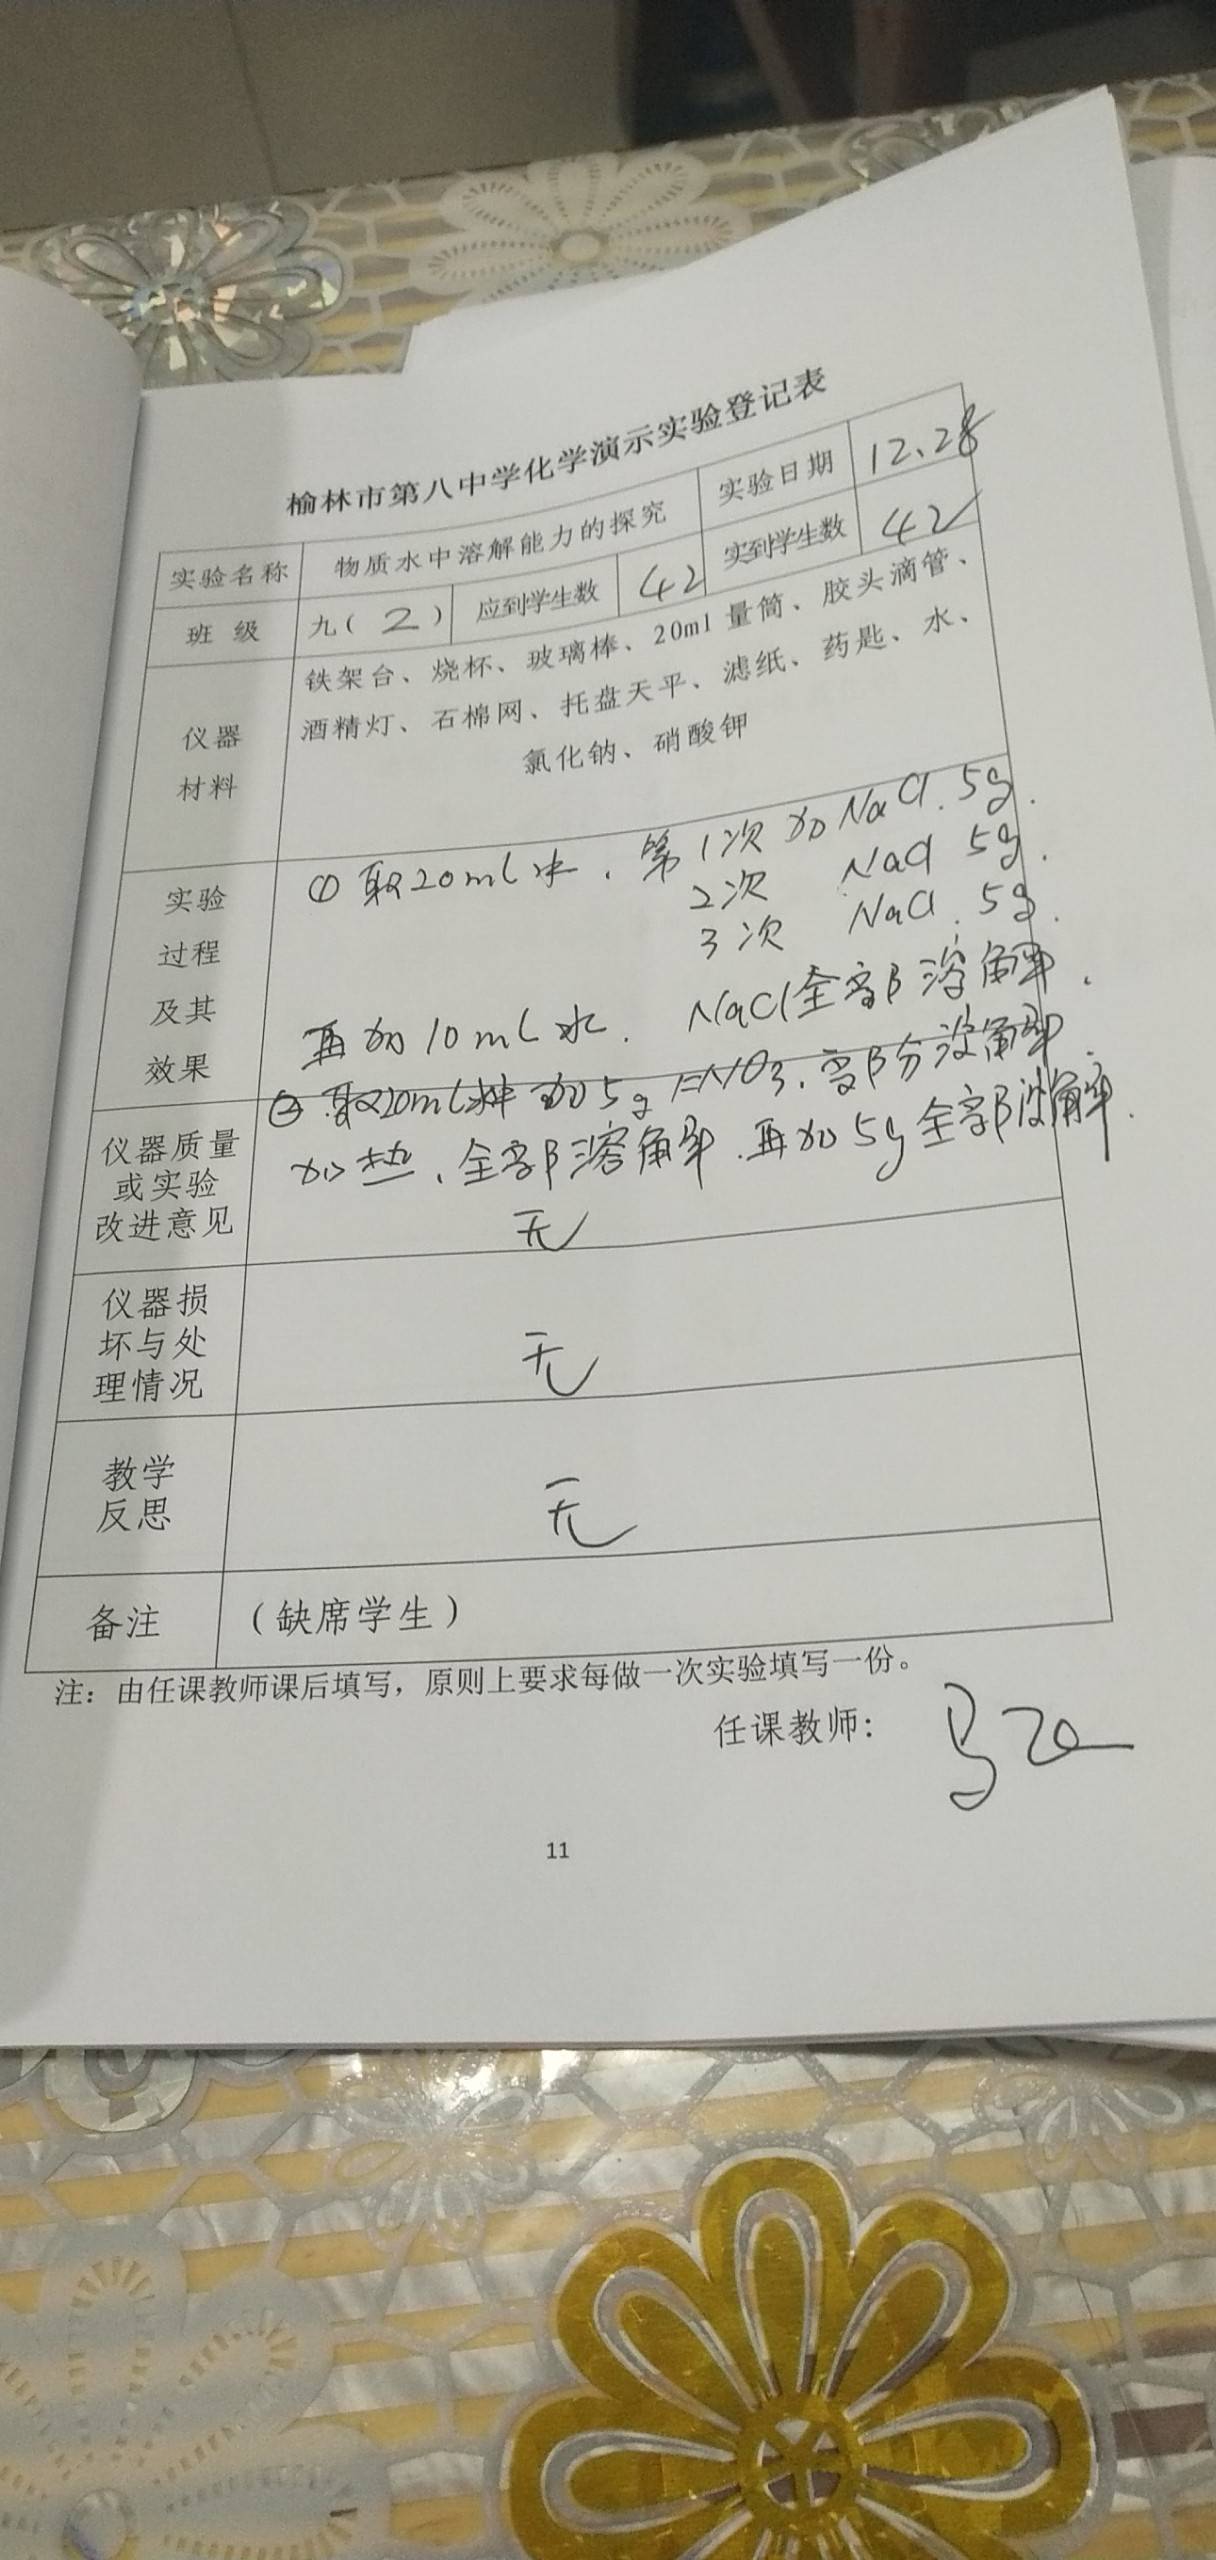 榆林市第八中学化学演示实验登记表
实验名称 物质水中溶解能力的探究 实验日期 12.28
班 级 九( 2 ) 应到学生数 42 实到学生数 42
仪器
材料
铁架台、烧杯、玻璃棒、20ml 量筒、胶头滴管、
酒精灯、石棉网、托盘天平、滤纸、药匙、水、
氯化钠、硝酸钾
实验
过程
及其
效果
① 取20ml水. 第1次加NaCl.5g.
2次 NaCl 5g.
3次 NaCl.5g.
再加10ml水. NaCl全部溶解.
② 取20ml 加5g KNO3.部分没解
加热.全部溶解.再加5g全部没解.
仪器质量
或实验
改进意见
无
仪器损
坏与处
理情况
无
教学
反思
无
备注 (缺席学生)
注：由任课教师课后填写，原则上要求每做一次实验填写一份。
任课教师：
11